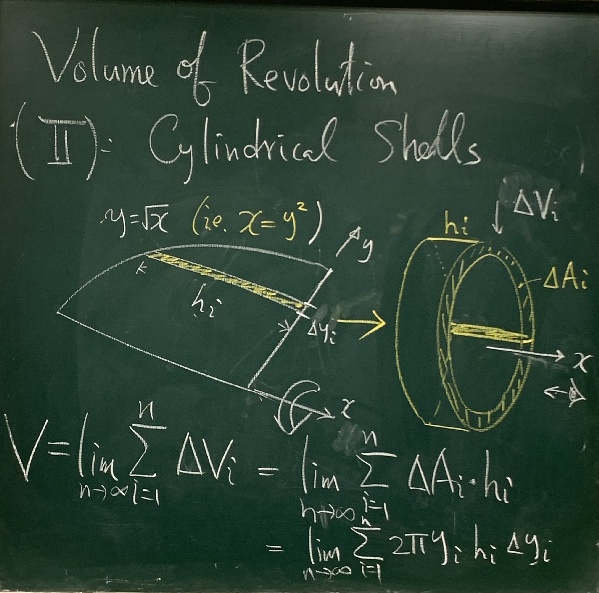 Volume of Revolution
(II): Cylindrical Shells
y=√x (i.e. x=y²)
y
hi
Δyi
x
hi
ΔVi
ΔAi
x
V = lim n→∞ Σ i=1 n ΔVi = lim n→∞ Σ i=1 n ΔAi·hi
= lim n→∞ Σ i=1 n 2πyi hi Δyi